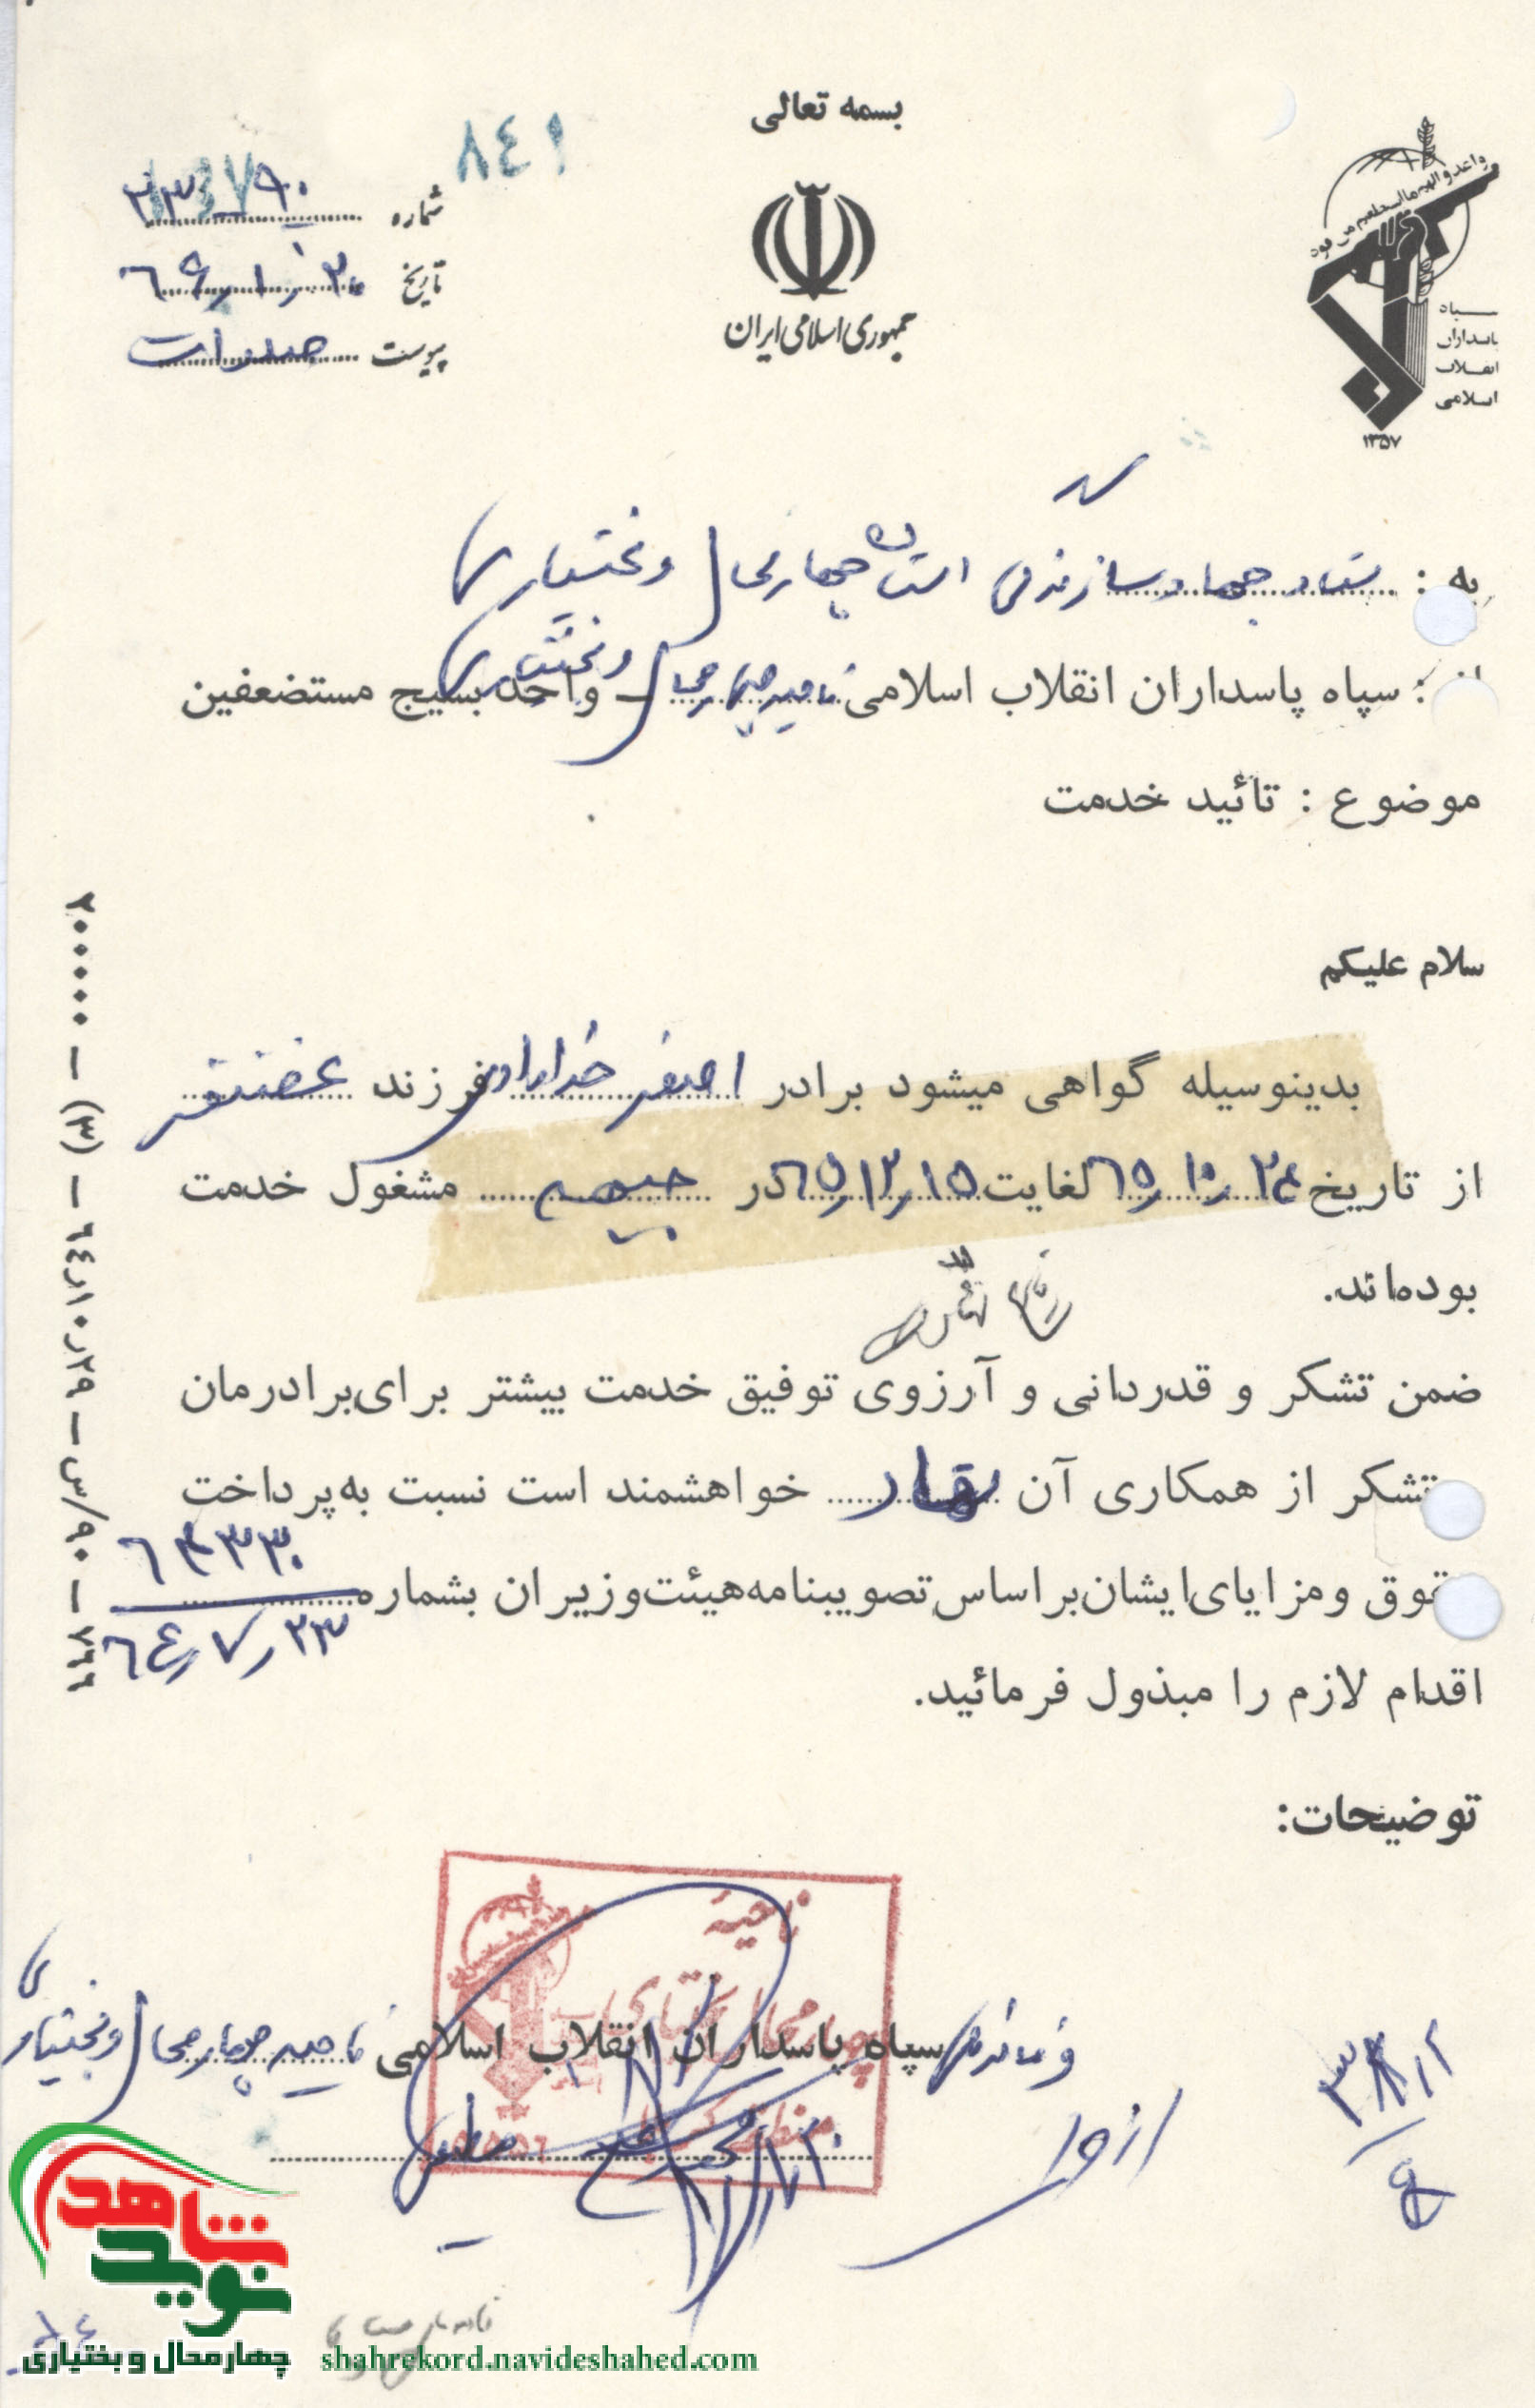 بسمه تعالی
جمهوری اسلامی ایران
سپاه
پاسداران
انقلاب
اسلامی
۱۳۵۷
۸٤۱
شماره
تاریخ
پیوست
به : ستاد جهاد سازندگی استان چهارمحال و بختیاری
از : سپاه پاسداران انقلاب اسلامی ناحیه چهارمحال و بختیاری ـ واحد بسیج مستضعفین
موضوع : تائید خدمت
سلام علیکم
بدینوسیله گواهی میشود برادر اصغر خدادادی فرزند غضنفر
از تاریخ ۲٤ر۱۰ر٦۵ لغایت ۱۵ر۱۲ر٦۵ در جبهه مشغول خدمت
بوده‌اند.
ضمن تشکر و قدردانی و آرزوی توفیق خدمت بیشتر برای برادرمان
تشکر از همکاری آن نهاد خواهشمند است نسبت به پرداخت
قوق و مزایای ایشان براساس تصویبنامه هیئت وزیران بشماره ٦٤۳۳۰
۲۳ر۷ر٦٤
اقدام لازم را مبذول فرمائید.
توضیحات:
فرماندهی سپاه پاسداران انقلاب اسلامی ناحیه چهارمحال و بختیاری
ناحیه
۷٦٦ — ۹۰/س — ۲۹ر۱۰ر٦٤ — (۳) — ۲۰۰۰۰۰
نوید شاهد
چهارمحال و بختیاری
shahrekord.navideshahed.com